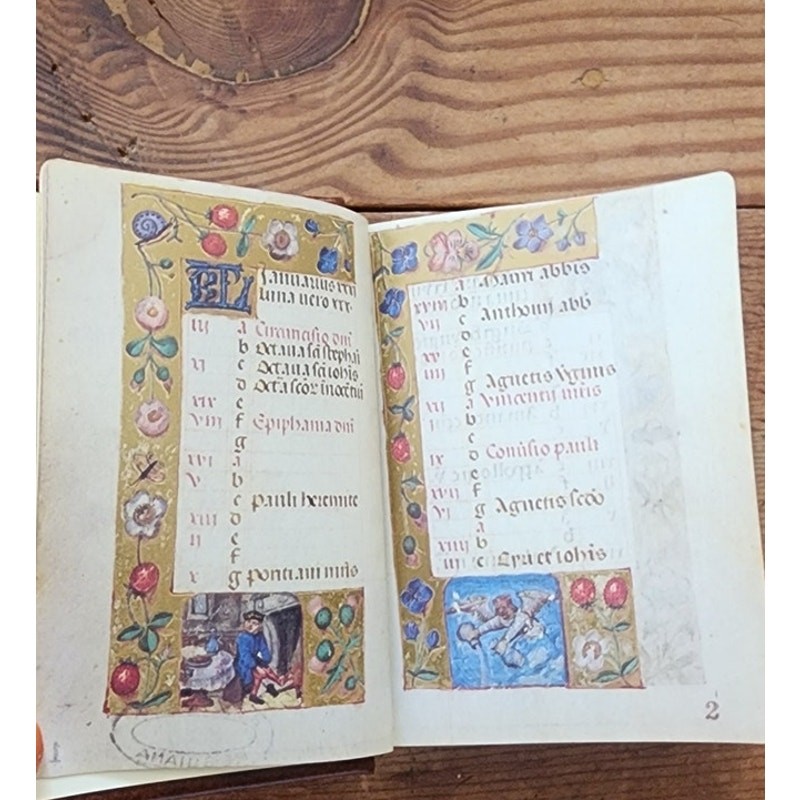 KL Januarius xxxi
luna vero xxx.
iij a Circuncisio dni
b Octaua sci stephani
xi c Octaua sci iohis
d Octa scoꝝ inocētiū
xix e
viij f Epiphania dni
g
xvi a
v b
c pauli heremite
xiij d
ij e
f
x g Pontiani mris
a Mauri abbis
xviij b
vij c Anthonij abb
d
xv e
iiij f
g Agnetis v̄ginis
xij a Vincentij mris
b
c
ix d Conūsio pauli
e
xvij f
vi g Agnetis scdo
a
xiiij b
iij c Cyri et iohis
1
2